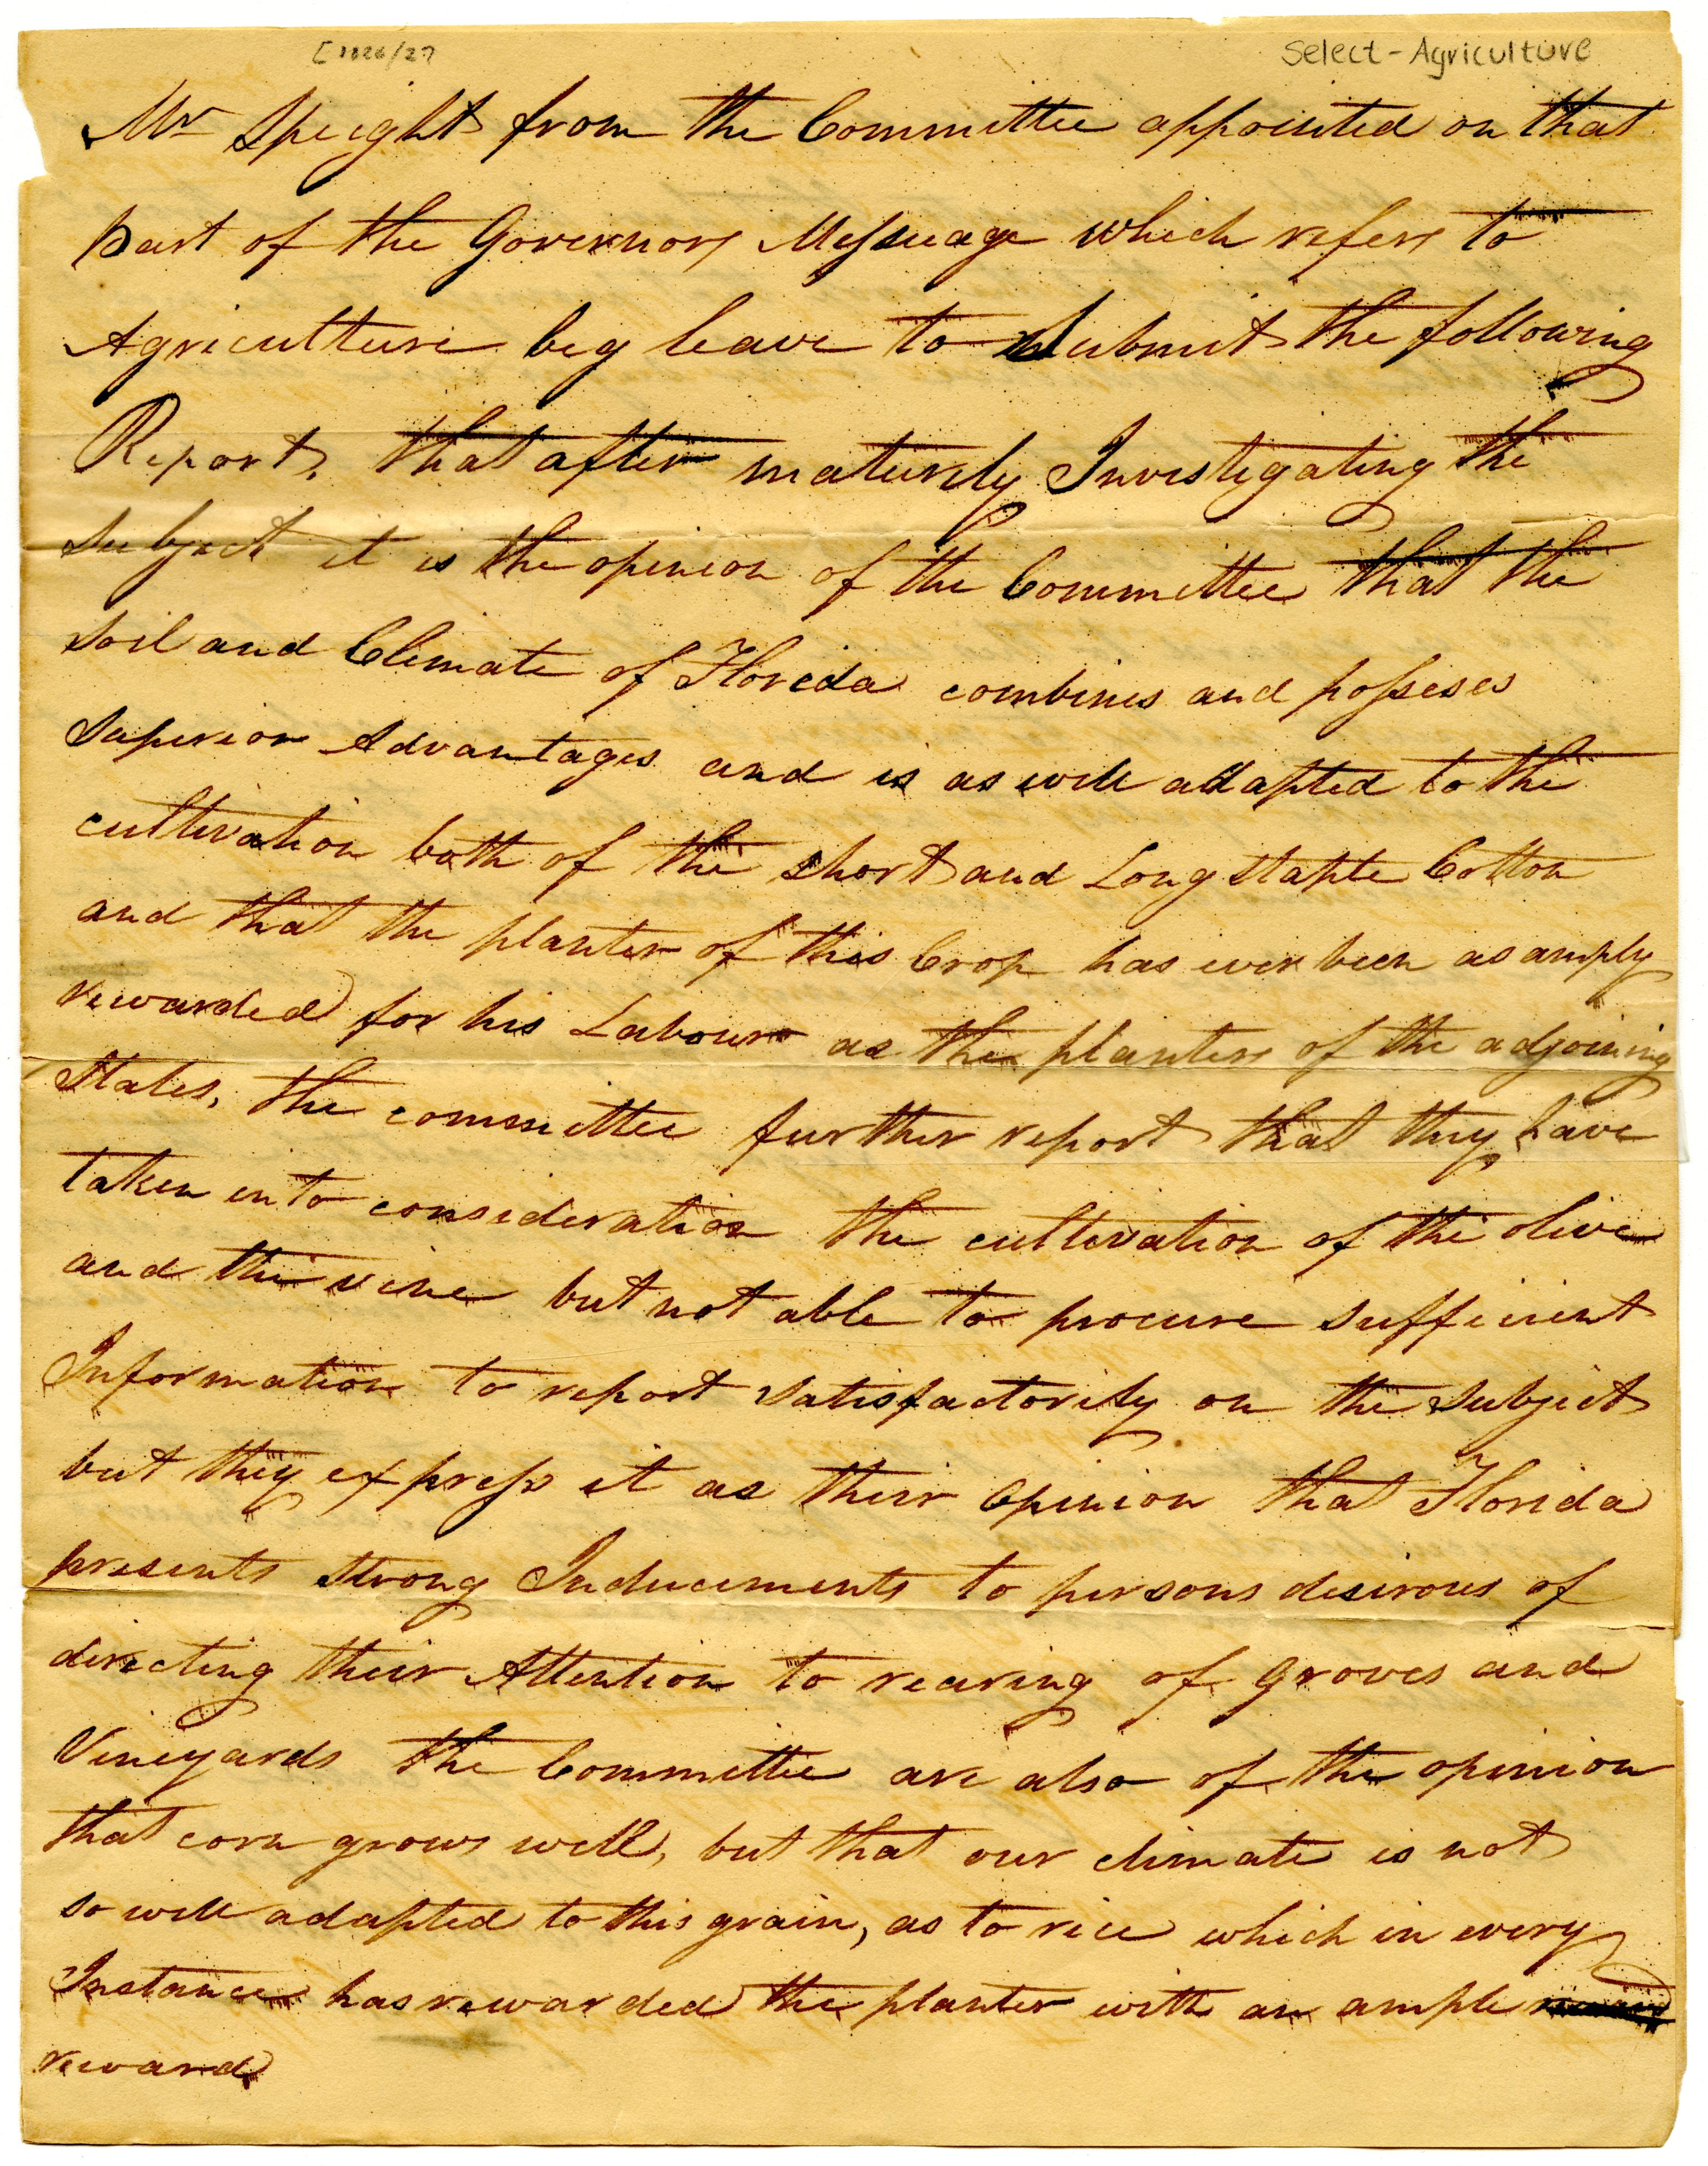 [1826/27
Select - Agriculture
Mr Speight from the Committee appointed on that
part of the Governors Message which refers to
Agriculture beg leave to Submit the following
Report, that after maturely Investigating the
Subject it is the opinion of the Committee that the
soil and Climate of Florida combines and posseses
Superior Advantages and is as well adapted to the
cultivation both of the short and Long staple Cotton
and that the planter of this Crop has ever been as amply
rewarded for his Labours as the planters of the adjoining
States, the committee further report that they have
taken into consideration the cultivation of the olive
and the vine but not able to procure sufficient
Information to report satisfactorily on the subject
but they express it as their Opinion that Florida
presents strong Inducements to persons desirous of
directing their Attention to rearing of groves and
Vineyards the Committee are also of the opinion
that corn grows well, but that our climate is not
so well adapted to this grain, as to rice which in every
Instance has rewarded the planter with an ample
reward